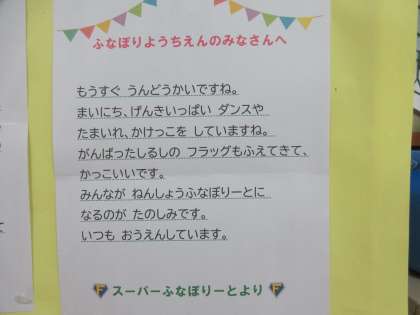 ふなぼりようちえんのみなさんへ
もうすぐ うんどうかいですね。
まいにち、げんきいっぱい ダンスや
たまいれ、かけっこを していますね。
がんばったしるしの フラッグもふえてきて、
かっこいいです。
みんなが ねんしょうふなぼりーとに
なるのが たのしみです。
いつも おうえんしています。
F スーパーふなぼりーとより F